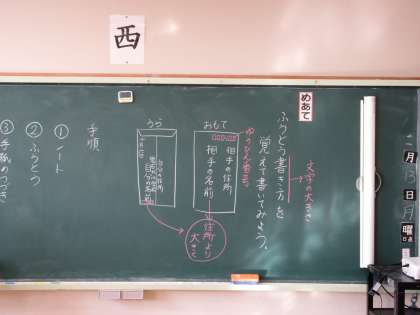 西
めあて
ふうとう書き方を
覚えて書いてみよう。
文字の大きさ
ゆうびん番号
おもて
相手の住所
相手の名前
住所より
大きく
うら
自分の住所
自分の名前
手順
①ノート
②ふうとう
③手紙のつづき
月
13
日
月
曜